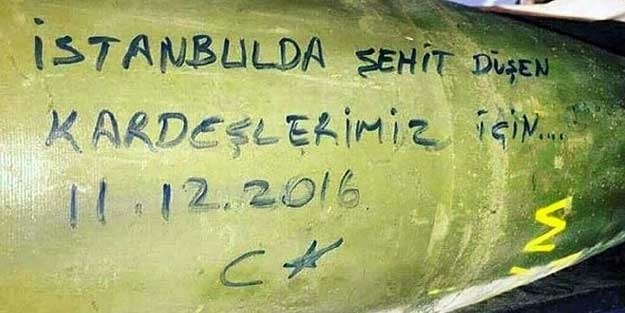 İSTANBULDA ŞEHİT DÜŞEN
KARDEŞLERİMİZ İÇİN...
11.12.2016
C★